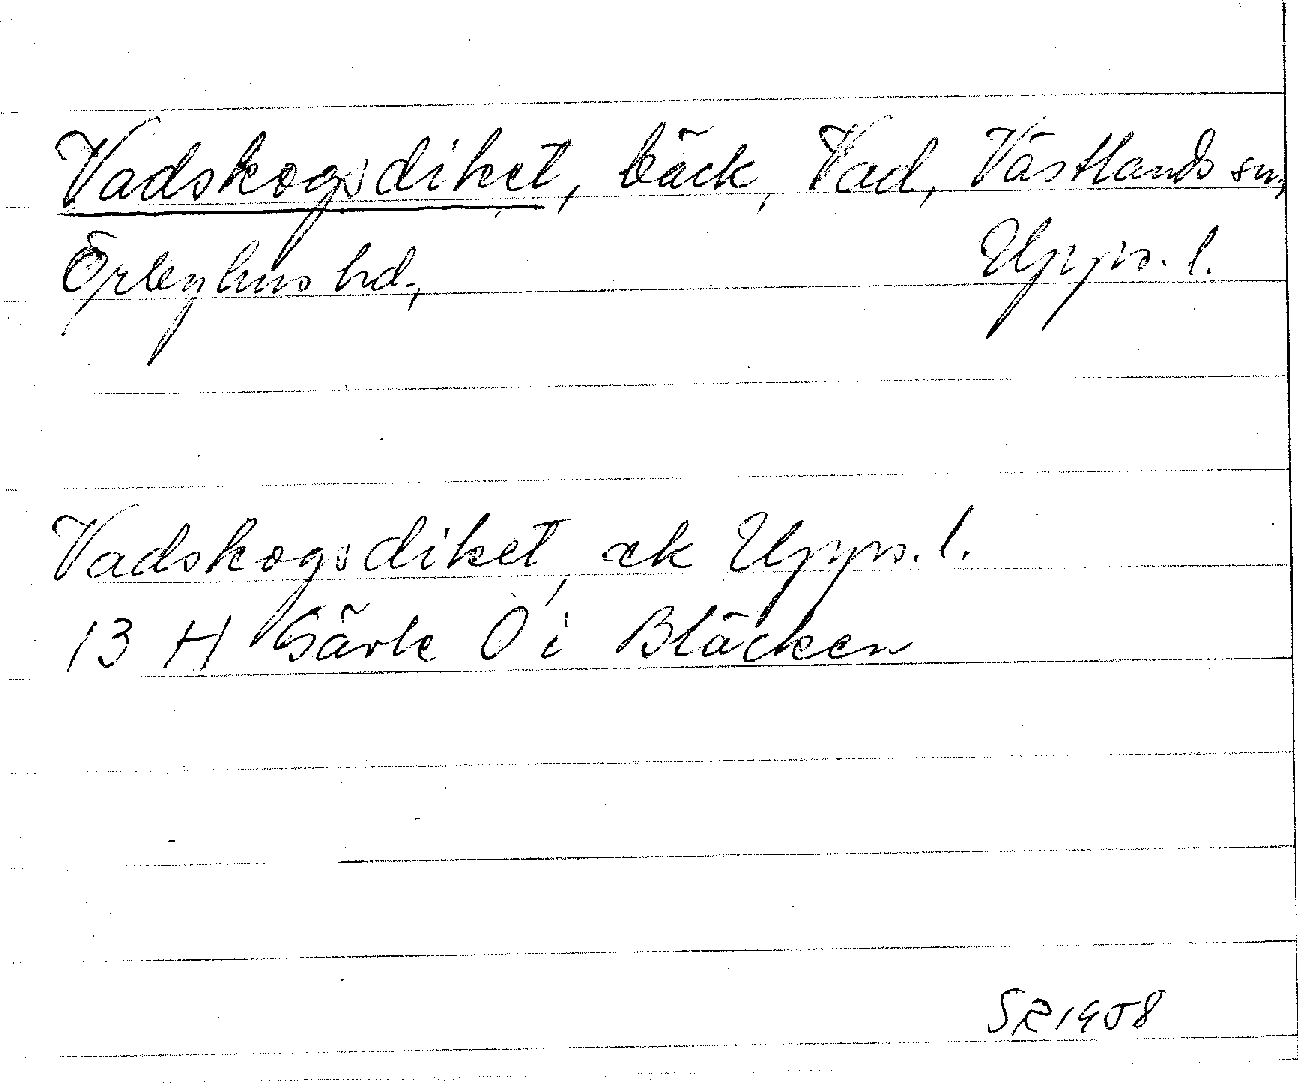 Vadskogsdiket, bäck, Vad, Västlands sn,
Örbyhus hd., Upps. l.
Vadskogsdiket, ek Upps. l.
13 H Gävle O i Bläcken
SR 1958